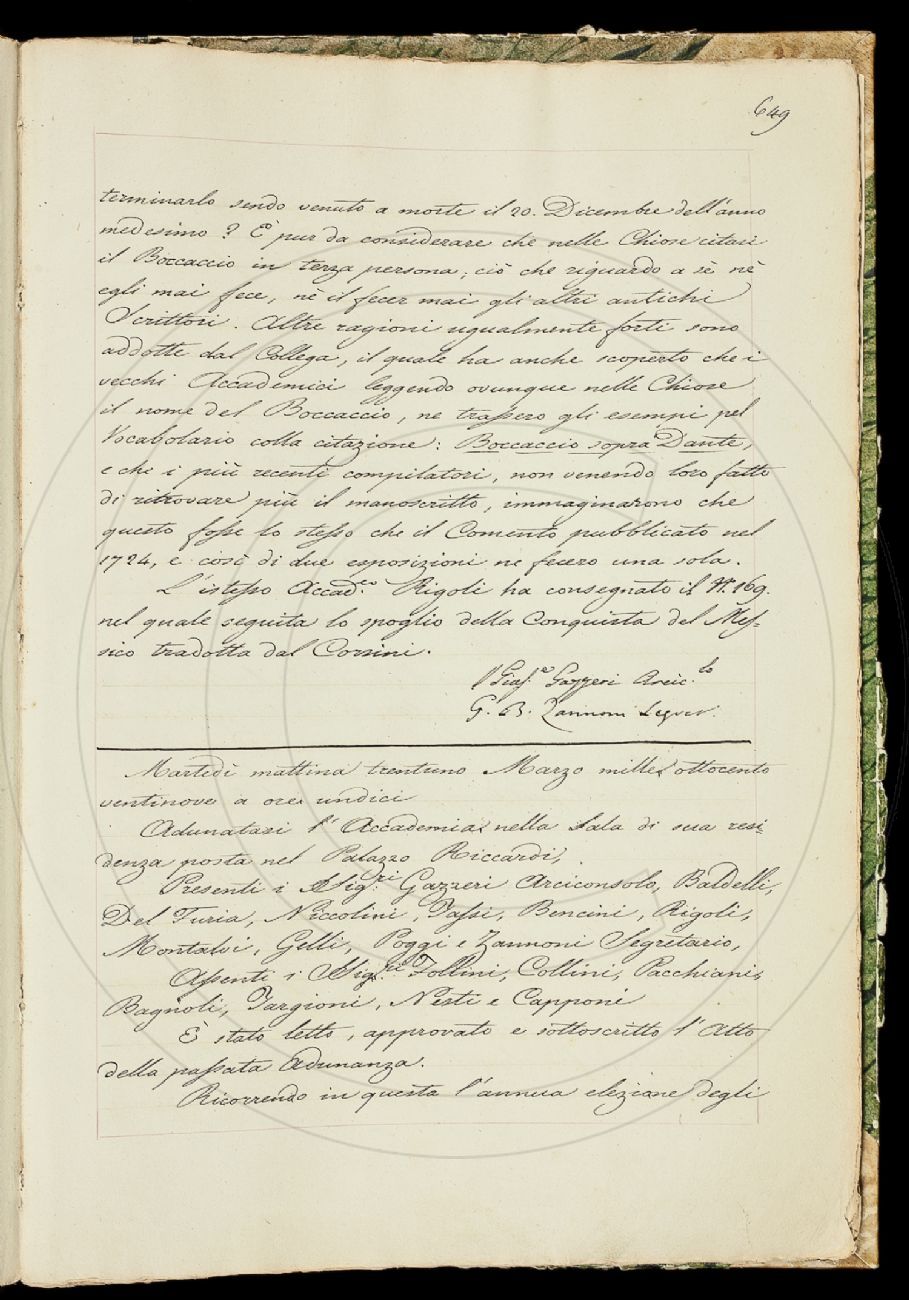 649
terminarlo sendo venuto a morte il 20. Dicembre dell'anno
medesimo? È pur da considerare che nelle Chiose citasi
il Boccaccio in terza persona; ciò che riguardo a sè nè
egli mai fece, nè il fecer mai gli altri antichi
Scrittori. Altre ragioni ugualmente forti sono
addotte dal Collega, il quale ha anche scoperto che i
vecchi Accademici leggendo ovunque nelle Chiose
il nome del Boccaccio, ne trassero gli esempi pel
Vocabolario colla citazione: Boccaccio sopra Dante,
e che i più recenti compilatori, non venendo loro fatto
di ritrovare più il manoscritto, immaginarono che
questo fosse lo stesso che il Comento pubblicato nel
1724, e così di due esposizioni ne fecero una sola.
L'istesso Accad.co Rigoli ha consegnato il N. 169.
nel quale seguita lo spoglio della Conquista del Mes-
sico tradotta dal Corsini.
Gius.e Gazzeri Arcic.lo
G. B. Zannoni Segret.
Martedì mattina trentuno Marzo mille ottocento
ventinove a ore undici
Adunatasi l'Accademia nella Sala di sua resi-
denza posta nel Palazzo Riccardi,
Presenti i Sig.ri Gazzeri Arciconsolo, Baldelli,
Del Furia, Niccolini, Tassi, Bencini, Rigoli,
Montalvi, Gelli, Poggi e Zannoni Segretario,
Assenti i Sig.ri Follini, Collini, Pacchiani,
Bagnoli, Targioni, Nesti e Capponi
E' stato letto, approvato e sottoscritto l'Atto
della passata Adunanza.
Ricorrendo in questa l'annua elezione degli